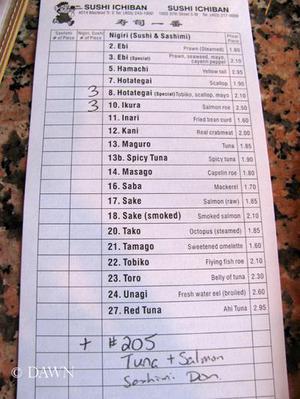 SUSHI ICHIBAN
SUSHI ICHIBAN
寿司一番
Nigiri (Sushi & Sashimi)
2. Ebi Prawn (Steamed) 1.80
3. Ebi (Special) Prawn, seaweed, mayo, cayenn pepper 2.10
5. Hamachi Yellow tail 2.95
7. Hotategai Scallop 1.90
3 8. Hotategai (Special) Tobiko, scallop, mayo 2.10
3 10. Ikura Salmon roe 2.50
11. Inari Fried bean curd 1.60
12. Kani Real crabmeat 2.00
13. Maguro Tuna 1.85
13b. Spicy Tuna Spicy tuna 1.90
14. Masago Capelin roe 1.80
16. Saba Mackerel 1.70
17. Sake Salmon (raw) 1.85
18. Sake (smoked) Smoked salmon 2.10
20. Tako Octopus (steamed) 1.85
21. Tamago Sweetened omelette 1.60
22. Tobiko Flying fish roe 2.10
23. Toro Belly of tuna 2.30
24. Unagi Fresh water eel (broiled) 2.60
27. Red Tuna Ahi Tuna 2.95
+ #205
Tuna + Salmon
Sashimi Don
© DAWN